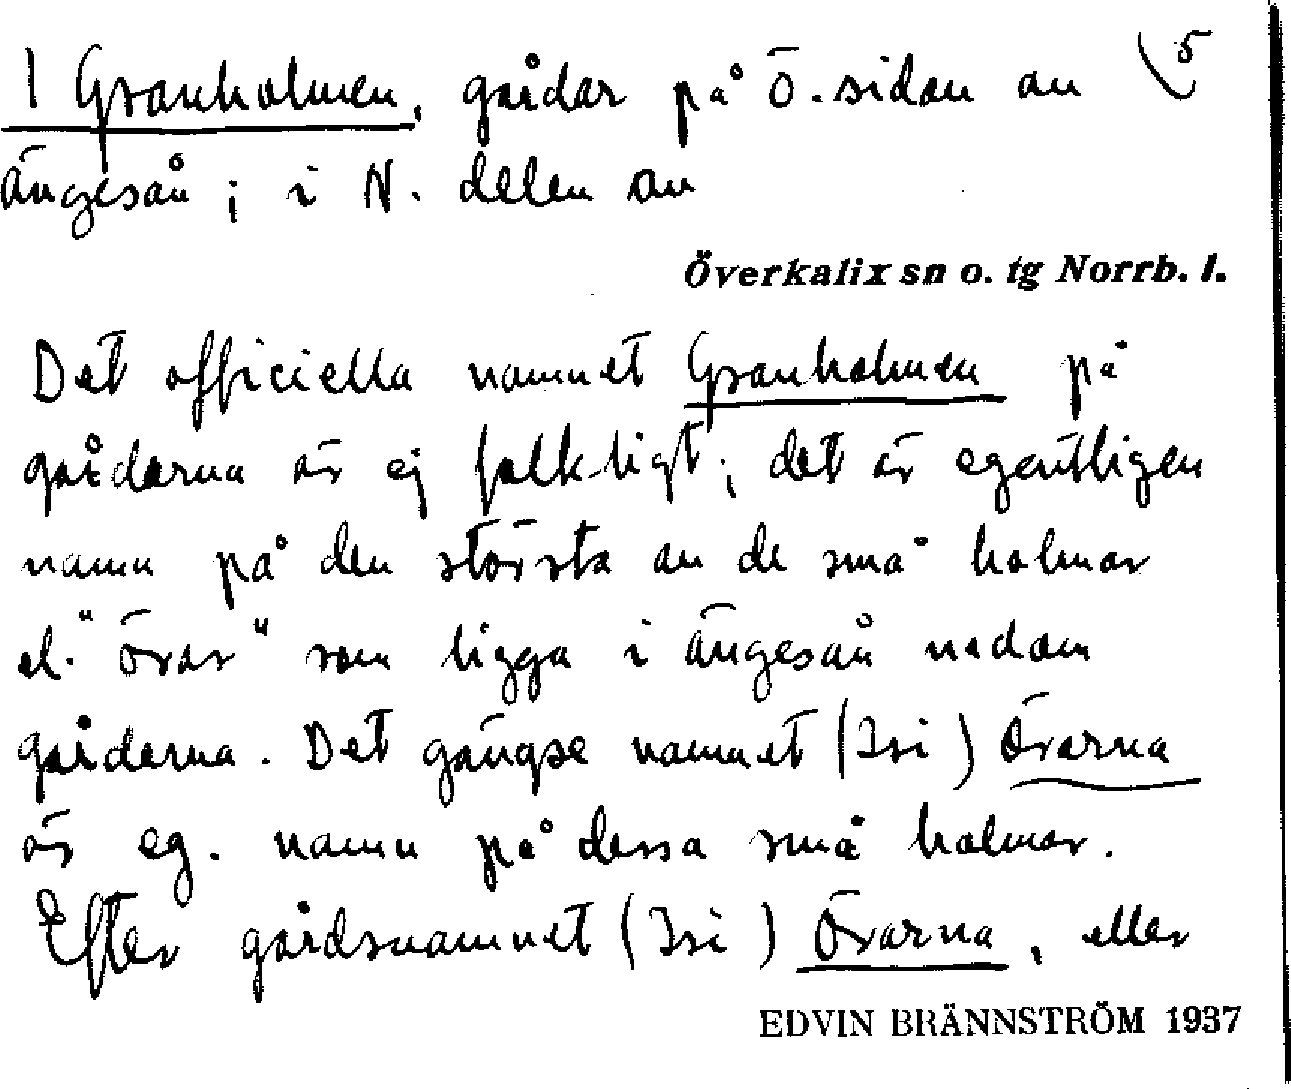 I Granholmen, gårdar på ö.sidan av 5
ängesån; i N. delen av
Överkalix sn o. tg Norrb. l.
Det officiella namnet Granholmen på
gårdarna är ej folkligt; det är egentligen
namn på den största av de små holmar
el. "örar" som ligga i ängesån nedom
gårdarna. Det gängse namnet (Isi) örarna
är eg. namn på dessa små holmar.
Efter gårdsnamnet (Isi) örarna, eller
EDVIN BRÄNNSTRÖM 1937